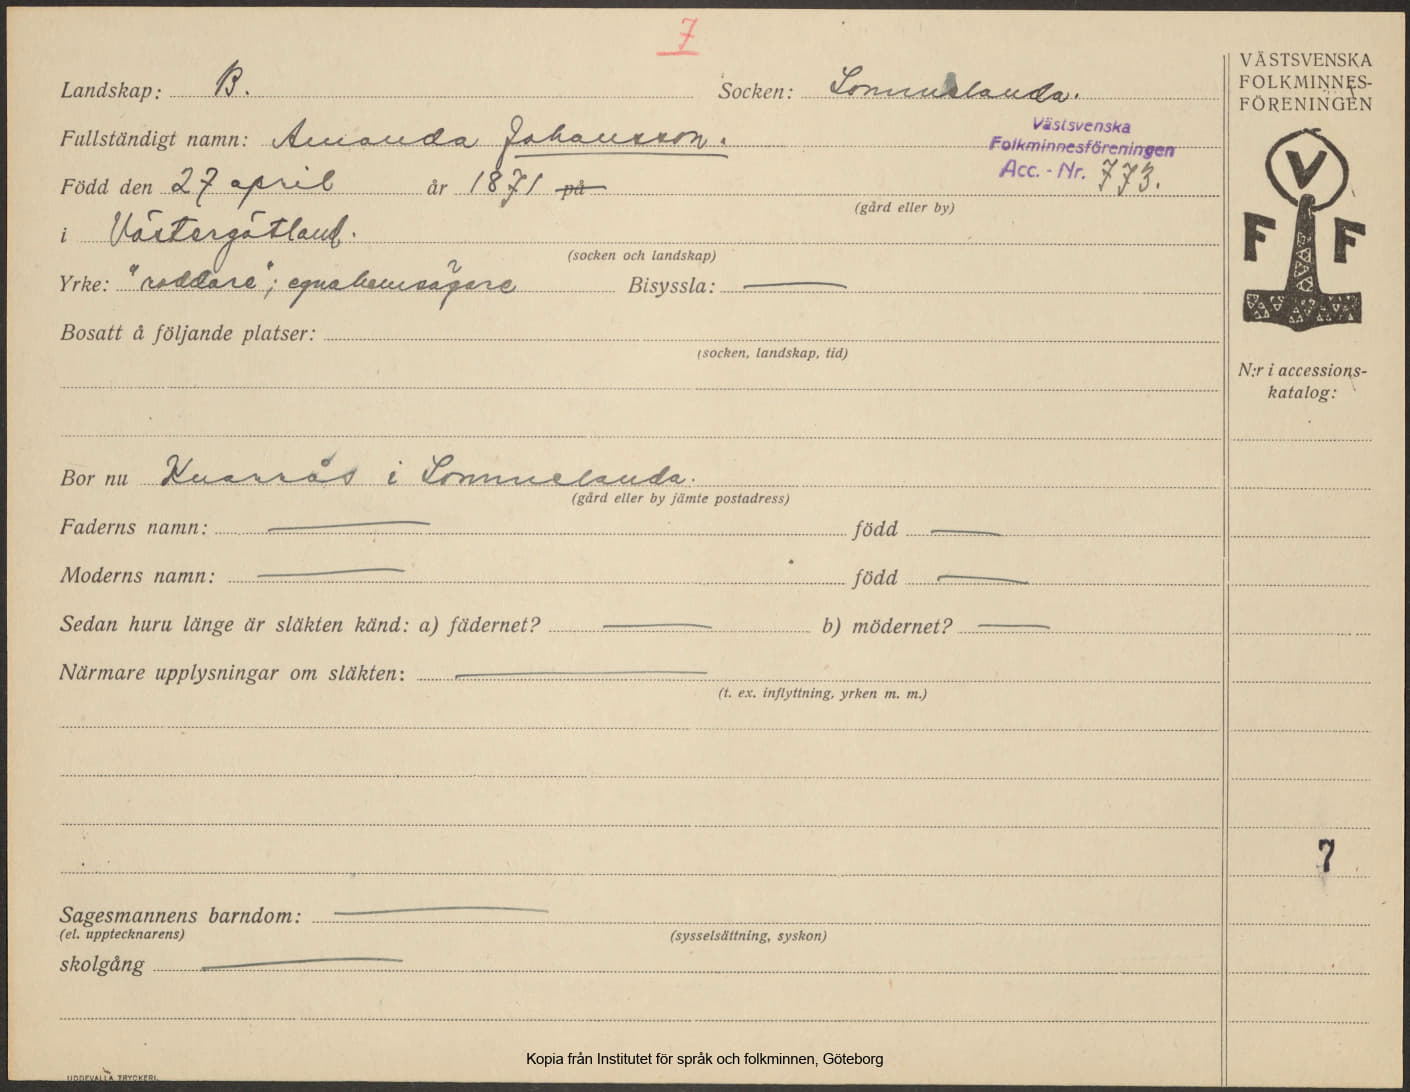 7
VÄSTSVENSKA
FOLKMINNES-
FÖRENINGEN
Landskap: B. Socken: Sommelanda.
Fullständigt namn: Amanda Johansson.
Västsvenska
Folkminnesföreningen
Acc. - Nr. 773.
Född den 27 april år 1871 på
(gård eller by)
i Västergötland.
(socken och landskap)
V
F F
Yrke: "roddare"; egnahemsägare Bisyssla:
Bosatt å följande platser:
(socken, landskap, tid)
N:r i accessions-
katalog:
Bor nu Knarrås i Sommelanda.
(gård eller by jämte postadress)
Faderns namn: född
Moderns namn: född
Sedan huru länge är släkten känd: a) fädernet? b) mödernet?
Närmare upplysningar om släkten:
(t. ex. inflyttning, yrken m. m.)
7
Sagesmannens barndom:
(el. upptecknarens) (sysselsättning, syskon)
skolgång
Kopia från Institutet för språk och folkminnen, Göteborg
UDDEVALLA TRYCKERI.